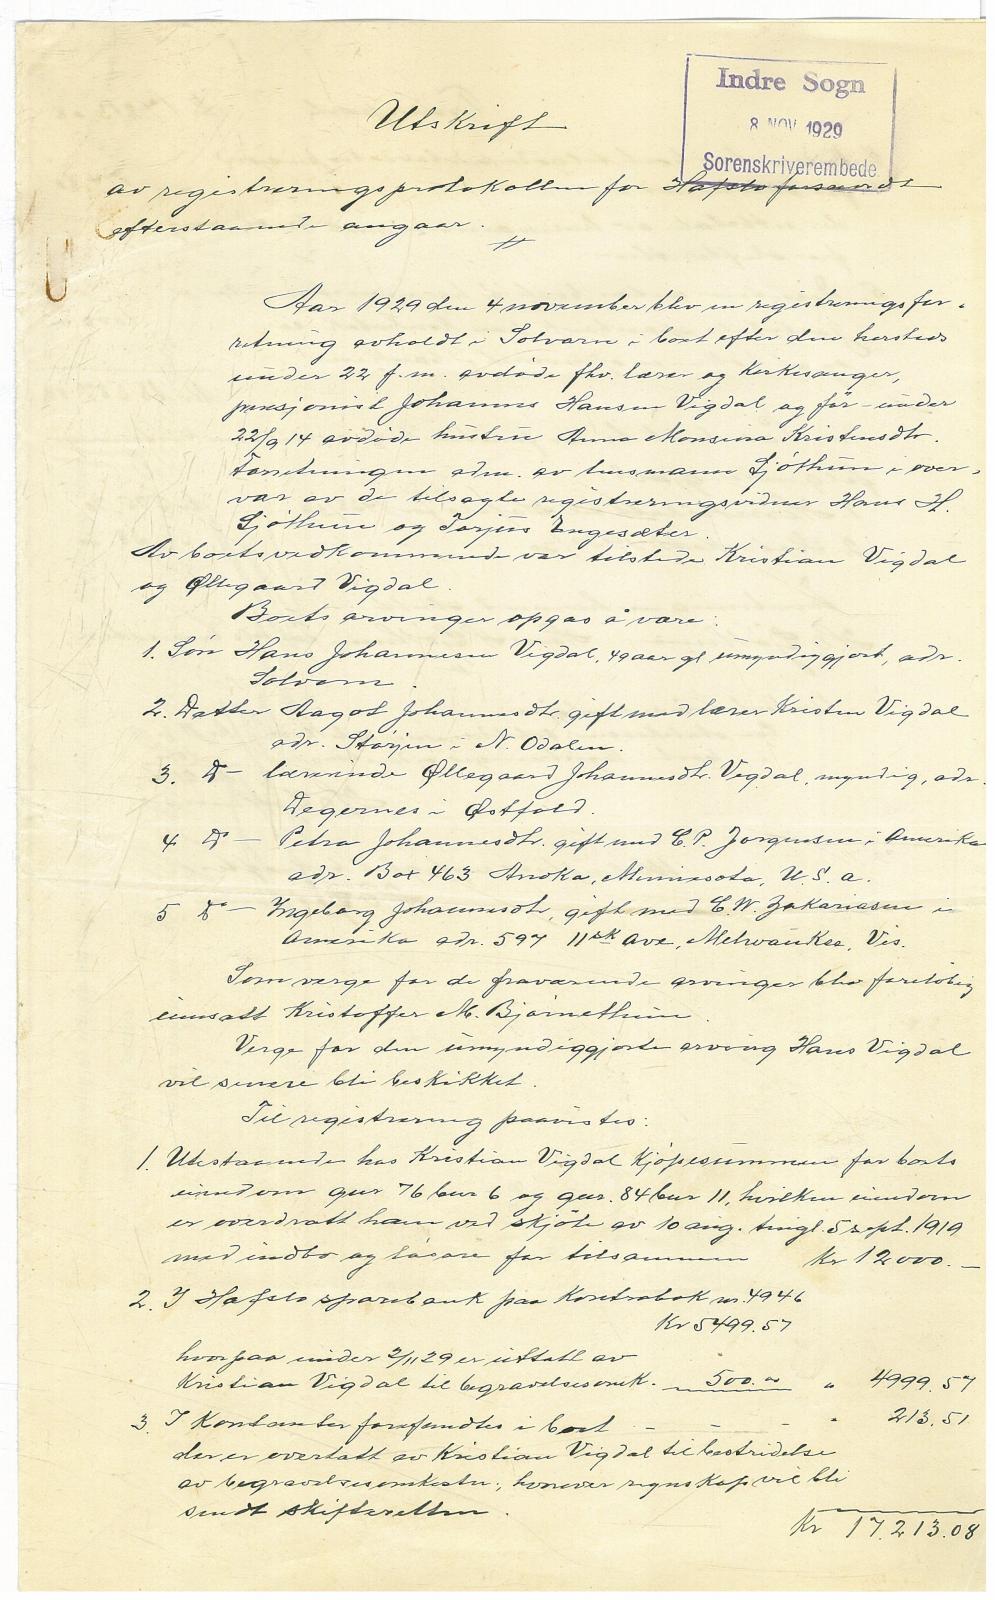 Indre Sogn
8 NOV 1929
Sorenskriverembede
Utskrift
av registreringsprotokollen for Hafslo
efterstaaende angaar.
Aar 1929 den 4 november blev en registreringsfor-
retning avholdt i Solvorn i boet efter den hersteds
under 22 f.m. avdøde fhv. lærer og Kirkesanger,
pensjonist Johannes Hansen Vigdal og før - under
22/9 14 avdøde hustru Anna Monsina Kristensdtr.
Forretningen adm. av lensmann Sjøthun i over-
vær av de tilsagte registreringsvidner Hans H.
Sjøthun og Torjus Engesæter.
Av boets vedkommende var tilstede Kristian Vigdal
og Øllegaard Vigdal.
Boets arvinger opgas å være:
1. Søn Hans Johannesen Vigdal, 49 aar gl umyndiggjort, adr.
Solvorn.
2. Datter Aagot Johannesdtr. gift med lærer Kristen Vigdal
adr. Størjen i N. Odalen.
3. D- lærerinde Øllegaard Johannesdtr. Vigdal, myndig, adr.
Degernes i Østfold.
4 D- Petra Johannesdtr. gift med C.P. Jorgensen i Amerika
adr. Box 463 Anoka, Minnesota, U.S.a.
5 D- Ingeborg Johannesdtr, gift med C.W. Zakariasen i
Amerika adr. 597 11th Ave, Melwaukee, Vis.
Som verge for de fraværende arvinger blev foreløbig
innsatt Kristoffer M. Bjørnethun.
Verge for den umyndiggjorte arving Hans Vigdal
vil senere bli beskikket.
Til registrering paavistes:
1. Utestaaende hos Kristian Vigdal kjøpesummen for boets
eiendom gnr 76 bnr 6 og gnr. 84 bnr 11, hvilken eiendom
er overdratt ham ved skjøte av 10 aug. tingl. 5 sept. 1919
med indbo og løsøre for tilsammen Kr 12000.-
2. I Hafslo sparebank paa Kontrabok nr. 4946
Kr 5499.57
hvorpaa under 2/11 29 er uttatt av
Kristian Vigdal til begravelsesomk. 500.00 " 4999.57
3. I Kontanter forefandtes i boet - - - " 213.51
der er overtatt av Kristian Vigdal til bestridelse
av begravelsesomkostn:, hvorover regnskap vil bli
sendt skifteretten.
Kr 17.213.08